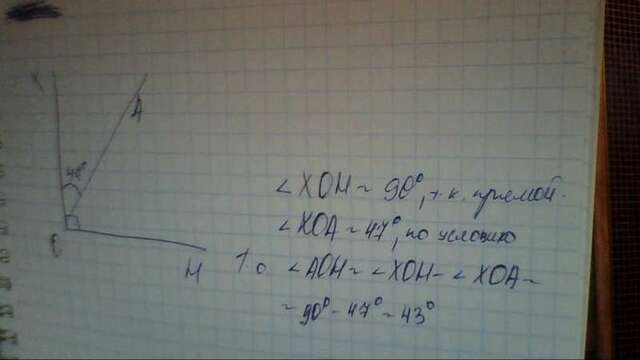 X
A
48°
O
H
∠XOH = 90°, т.к. прямой.
∠XOA = 47°, по условию
То ∠AOH = ∠XOH - ∠XOA =
= 90° - 47° = 43°